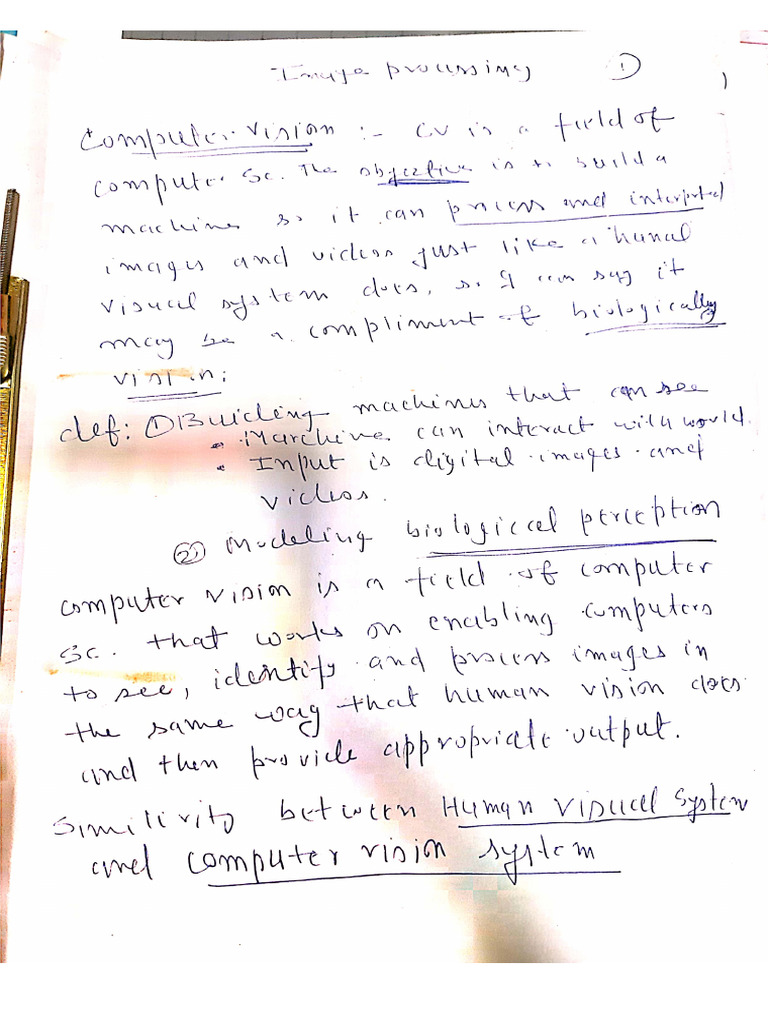 Image processing ①
Computer vision :- CV is a field of
computer Sc. The objective is to build a
machine so it can process and interpreted
images and videos just like a human
visual system does, so I can say it
may be a compliment of biologically
vision:
def: ① Building machines that can see
• Machine can interact with world.
• Input is digital images and
videos.
② Modeling biological perception
computer vision is a field of computer
Sc. that works on enabling computers
to see, identify and process images in
the same way that human vision does
and then provide appropriate output.
Similirity between Human Visual System
and computer vision system